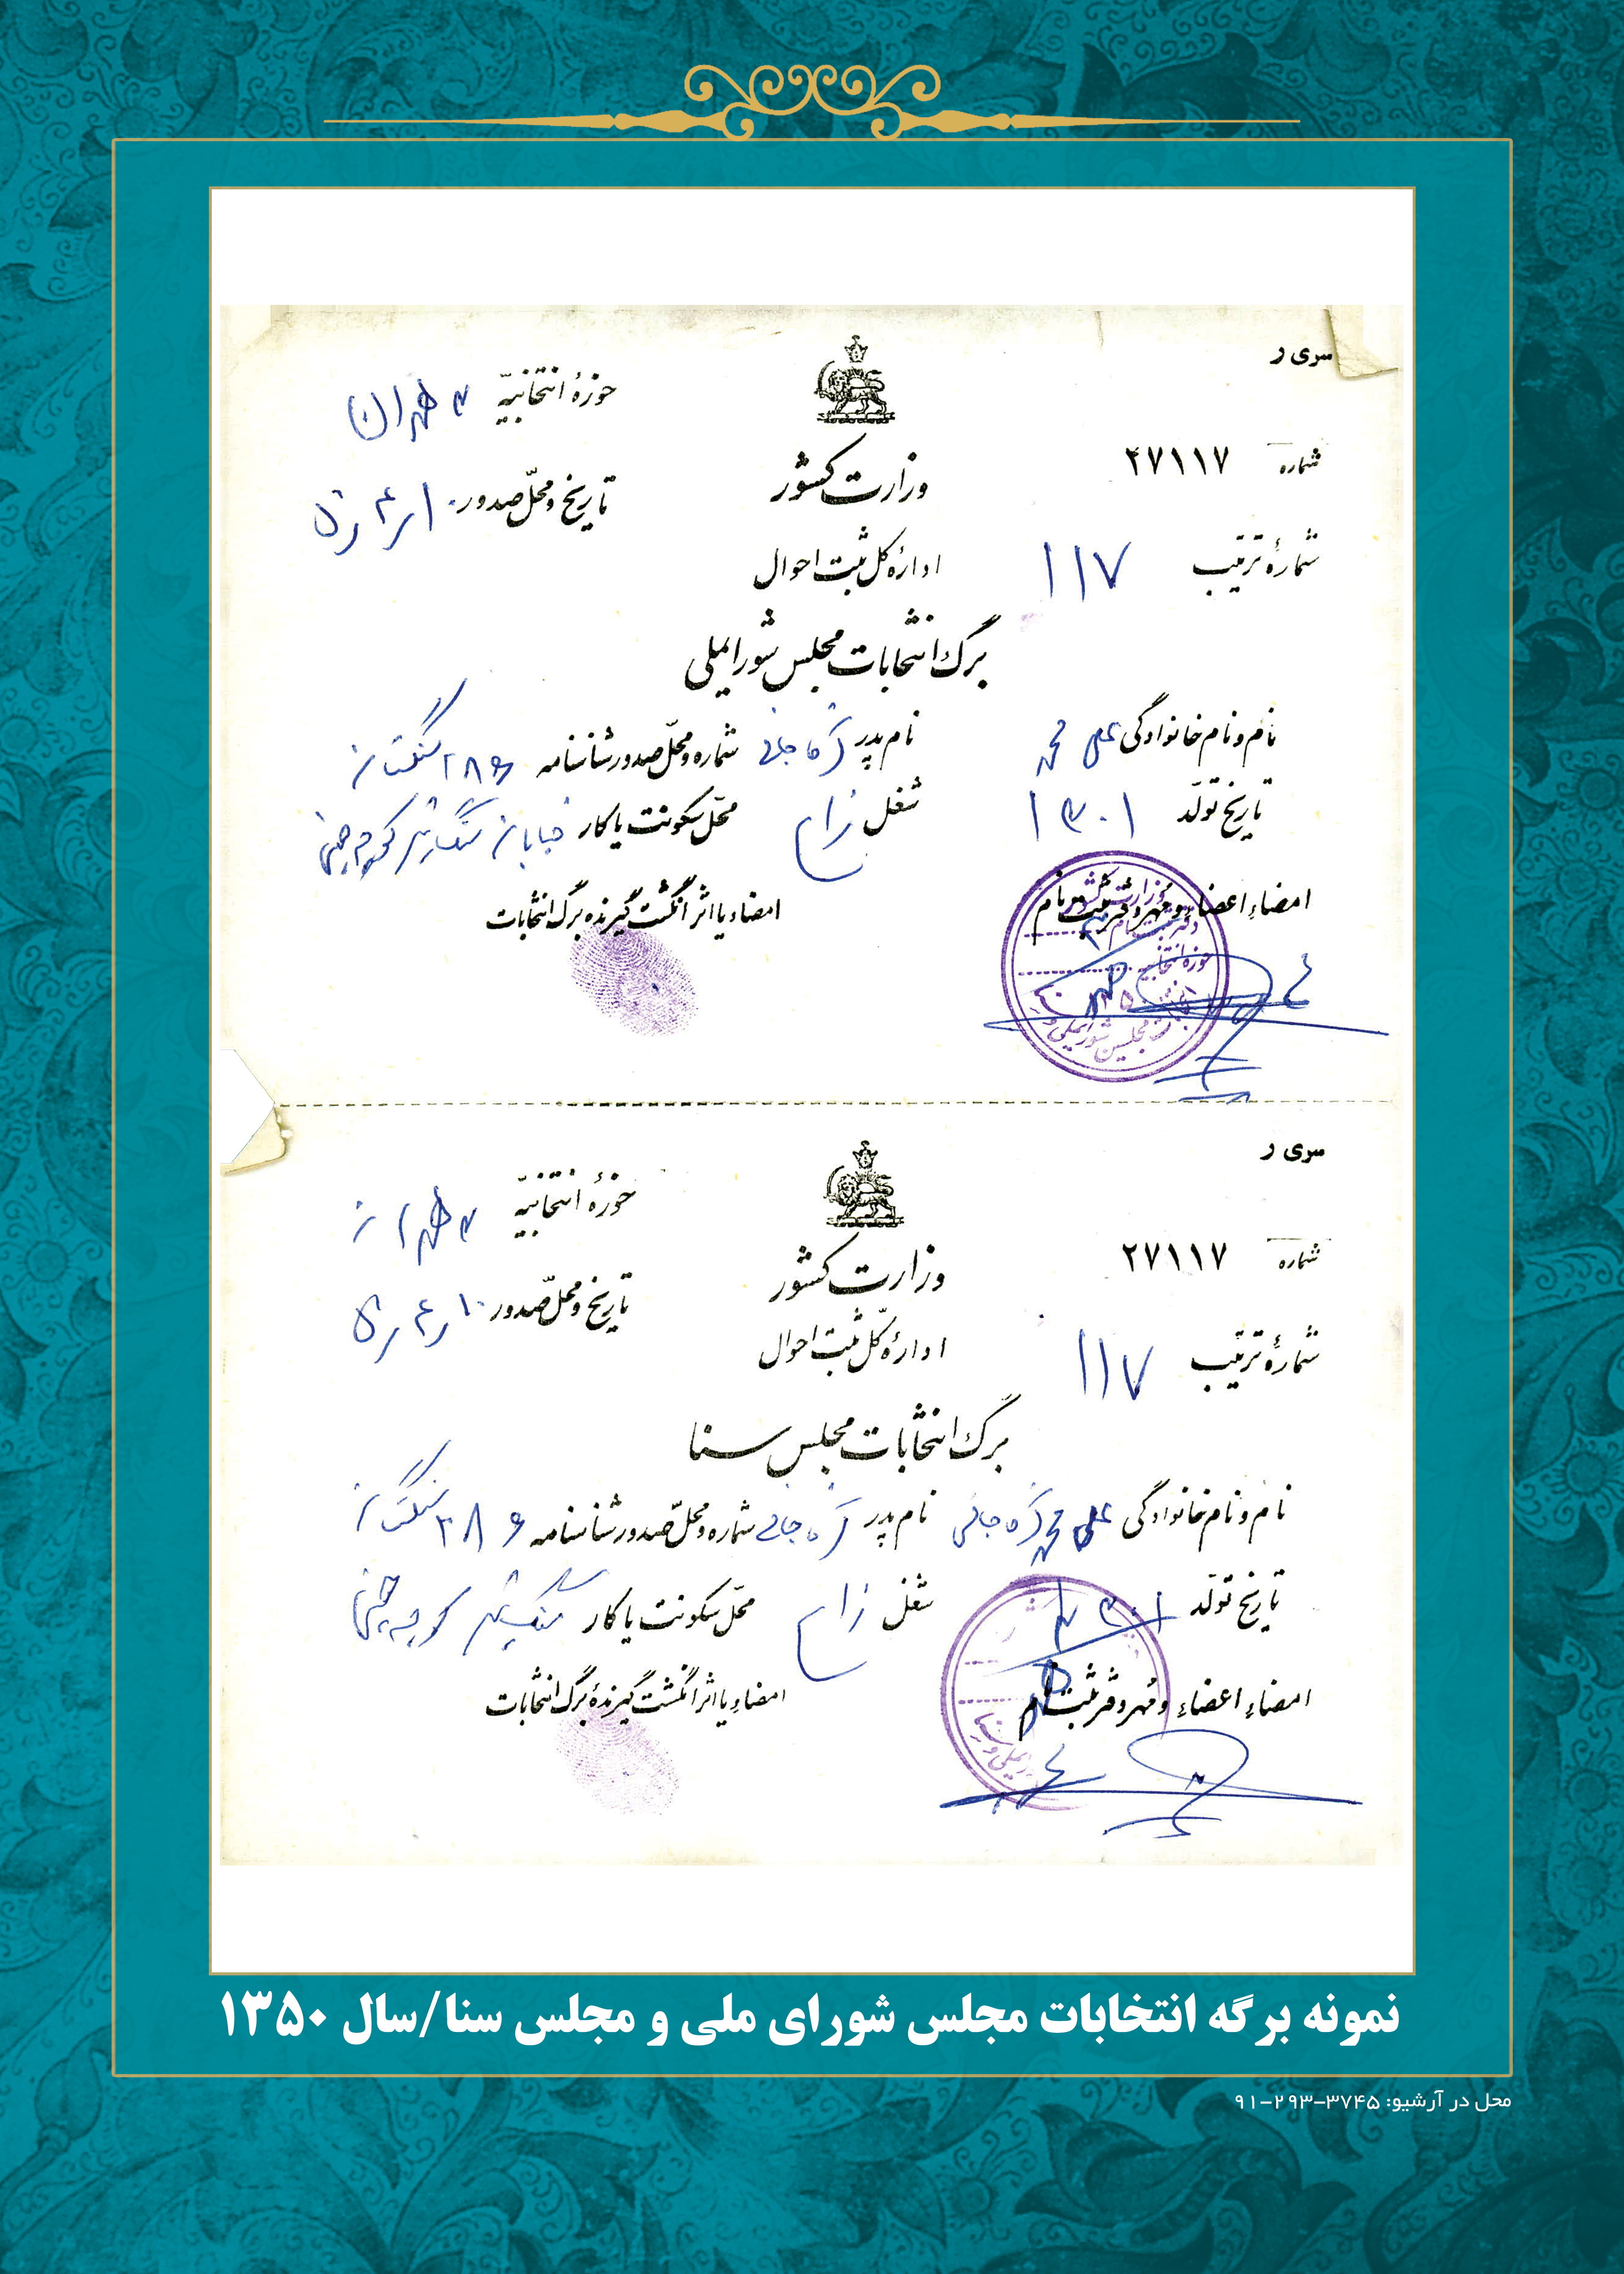 سری ر
حوزهٔ انتخابیّه ۳ طهران
شماره ۲۷۱۱۷
وزارت کشور
تاریخ و محلّ صدور ۱۰ر۴ر۵۰
شمارهٔ ترتیب ۱۱۷
ادارهٔ کل ثبت احوال
برگ انتخابات مجلس شورایملی
نام و نام خانوادگی علی محمد نام پدر شماره و محلّ صدور شناسنامه ۲۸۶
تاریخ تولّد ۱۳۰۱ شغل محلّ سکونت یا کار خیابان کوچه
امضاءِ اعضاء و مهر دفتر ثبت نام امضاء یا اثر انگشت گیرنده برگ انتخابات
وزارت کشور
حوزه انتخابیه
انتخابات مجلسین شورایملی و سنا
سری ر
حوزهٔ انتخابیّه ۳ طهران
شماره ۲۷۱۱۷
وزارت کشور
تاریخ و محلّ صدور ۱۰ر۴ر۵۰
شمارهٔ ترتیب ۱۱۷
ادارهٔ کلّ ثبت احوال
برگ انتخابات مجلس سنا
نام و نام خانوادگی علی محمد نام پدر شماره و محلّ صدور شناسنامه ۲۸۶
تاریخ تولّد ۱۳۰۱ شغل محلّ سکونت یا کار کوچه
امضاءِ اعضاءِ و مهر دفتر ثبت نام امضاءِ یا اثر انگشت گیرندهٔ برگ انتخابات
نمونه برگه انتخابات مجلس شورای ملی و مجلس سنا/سال ۱۳۵۰
محل در آرشیو: ۳۷۴۵-۲۹۳-۹۱